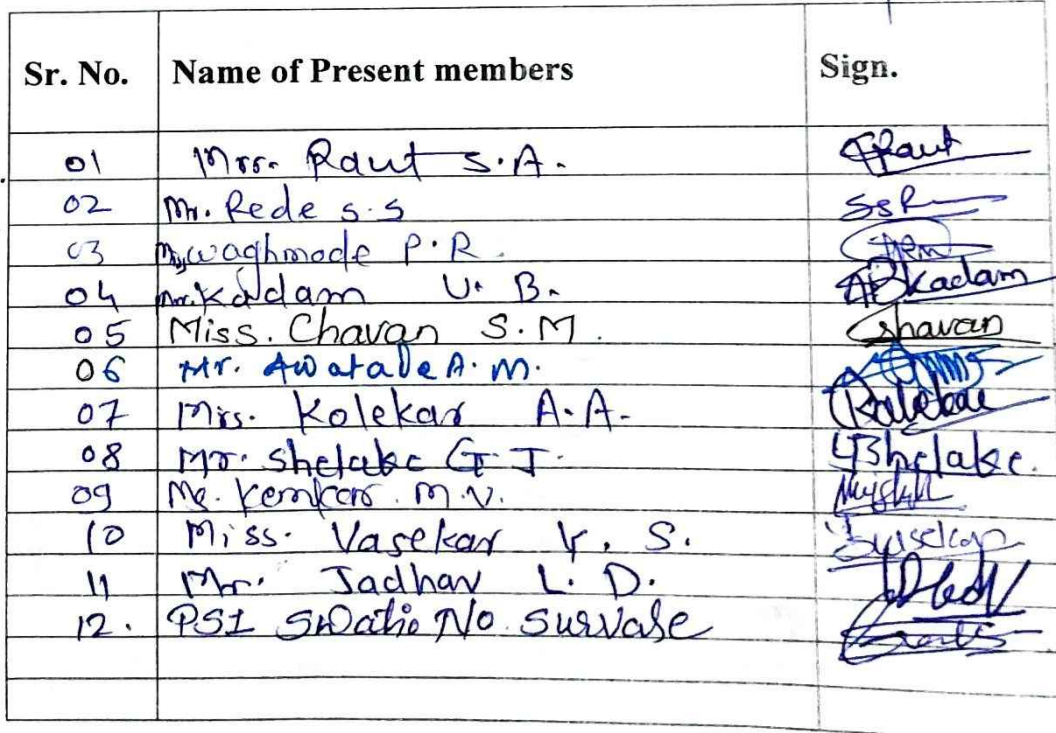 Sr. No. Name of Present members Sign.
01 Mrs. Raut S.A. Raut
02 Mr. Rede S.S SSR
03 Waghmode P.R.
04 Mr. Kadam U.B. ABKadam
05 Miss. Chavan S.M. Chavan
06 Mr. Awatade A.M.
07 Mrs. Kolekar A.A. Kolekar
08 Mr. Shelake G.J. Shelake.
09 Kemkar M.V.
10 Miss. Vasekar Y.S. Vasekar
11 Mr. Jadhav L.D.
12. PSI Survase